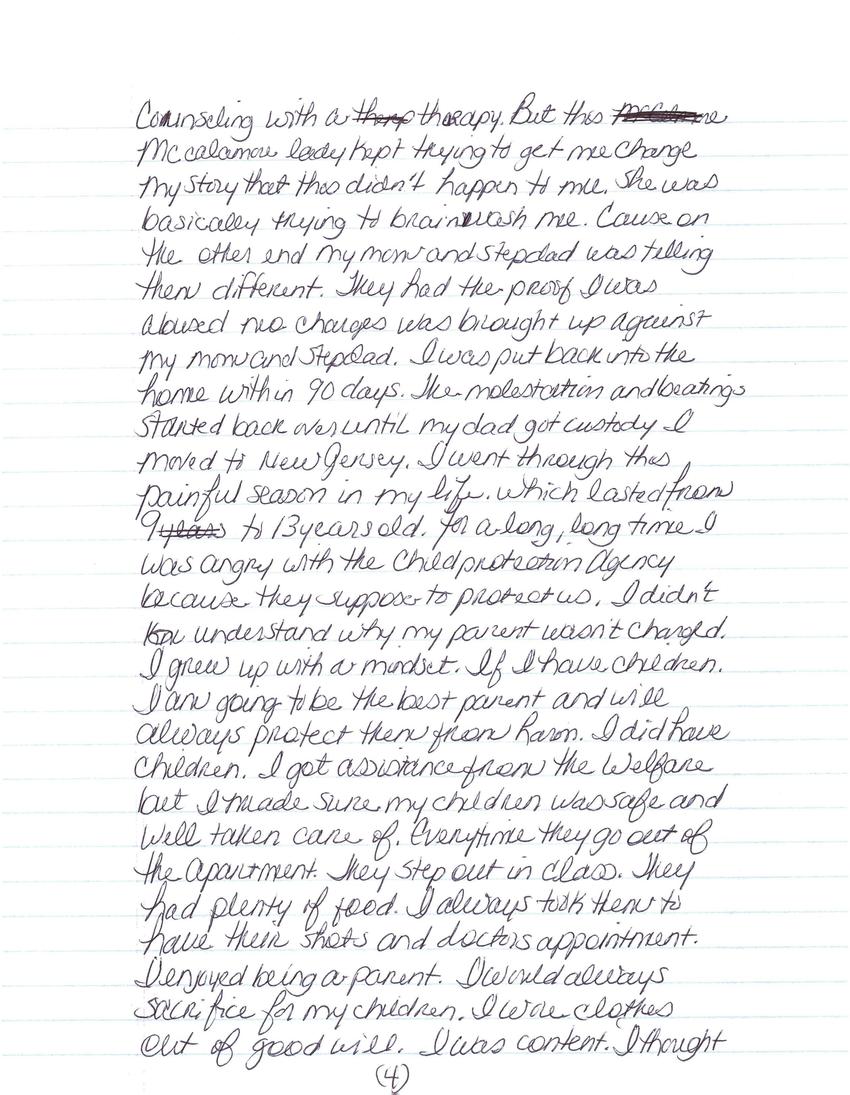 Counseling with a therapy. But this
Mccalamore lady kept trying to get me change
my story that thos didn't happen to me. She was
basically trying to brainwash me. Cause on
the other end my mom and stepdad was telling
them different. They had the proof I was
abused no charges was brought up against
my mom and stepdad. I was put back into the
home within 90 days. The molestation and beatings
started back over until my dad got custody I
moved to New Jersey. I went through this
painful season in my life. which lasted from
9 to 13 years old. For a long, long time I
was angry with the Child protection Agency
because they suppose to protect us. I didn't
understand why my parent wasn't charged.
I grew up with a mindset. If I have children.
I am going to be the best parent and will
always protect them from harm. I did have
children. I got assistance from the Welfare
but I made sure my children was safe and
well taken care of. Everytime they go out of
the apartment. They step out in class. They
had plenty of food. I always took them to
have their shots and doctors appointment.
I enjoyed being a parent. I would always
sacrifice for my children. I wore clothes
out of good will. I was content. I thought
(4)